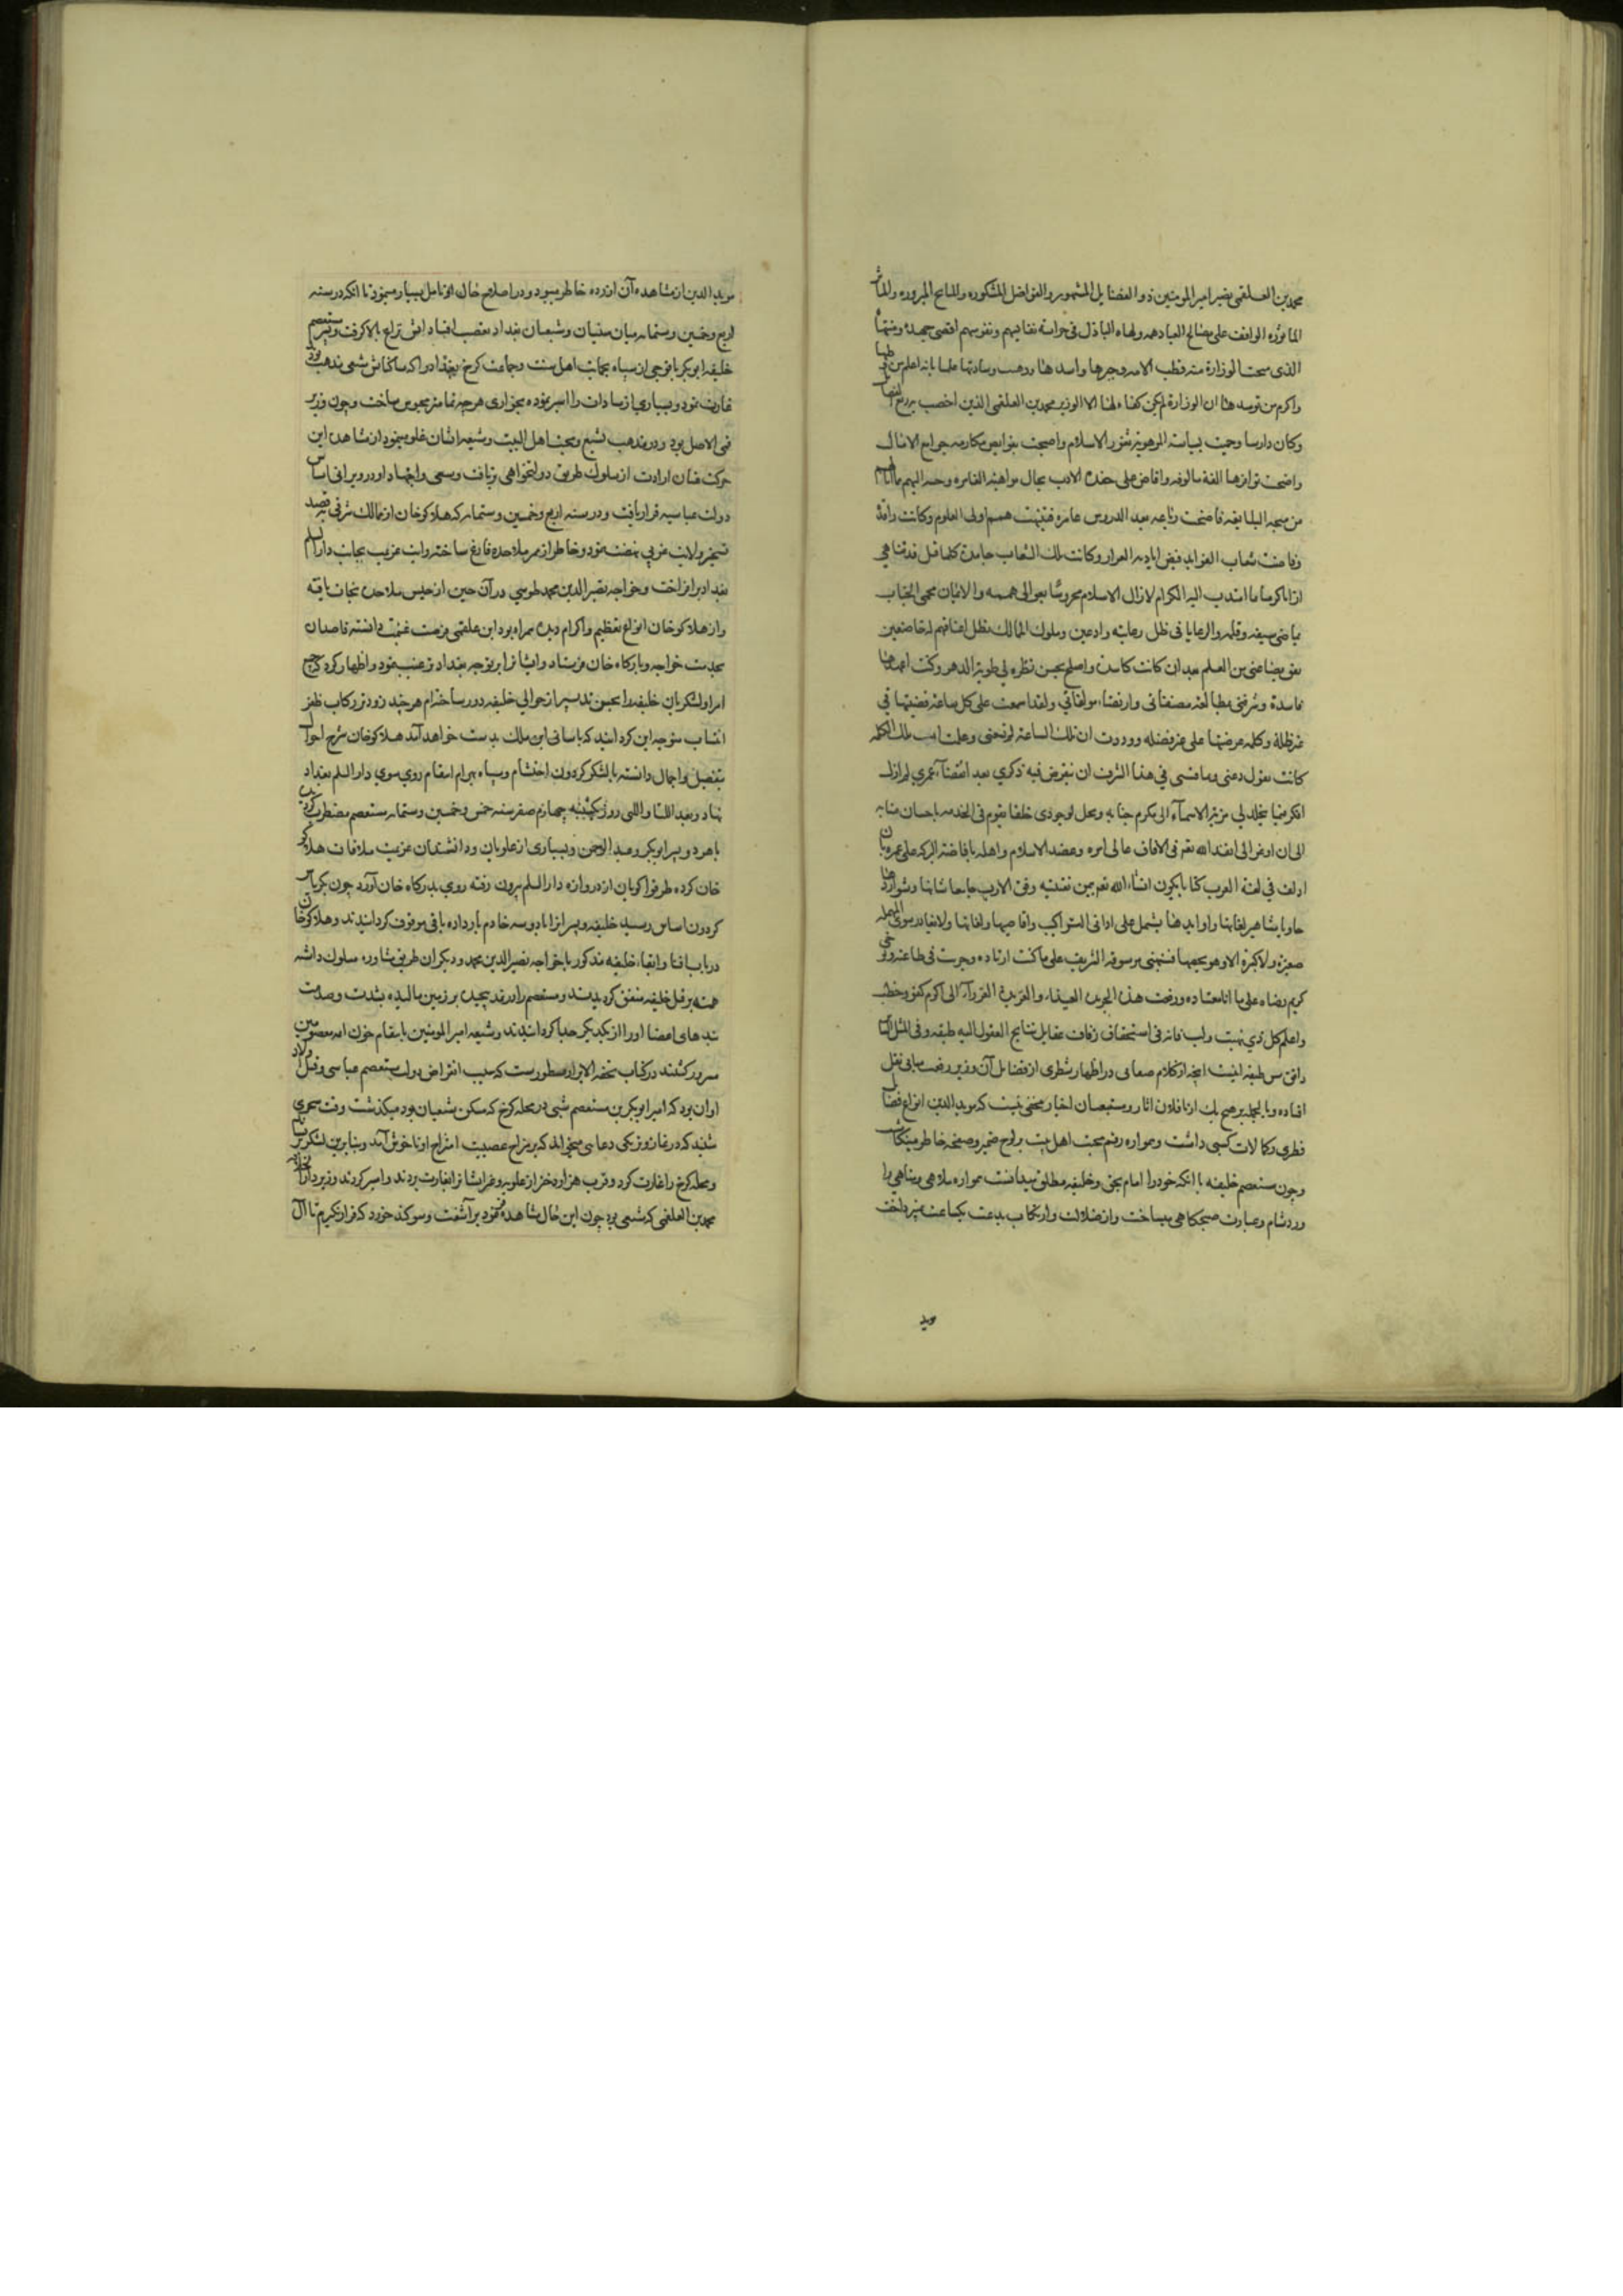 محمد بن العلقمی نصیر امیر المومنین ذو الفضایل المشهوره والفواضل المشکوره والمدایح المبروره والمآثر
الماثوره الواقف علی مصالح العباد همه ولهاه الباذل فی حراسة نفایسهم ونفوسهم اقصی جهده ومنتهاه
الذی منحت الوزارة منه قطب الامه وحبرها
واکرم من توسد هذا ان الوزارة لم یکن کفاء لها الا الوزیر محمد بن العلقمی الذین اخصب
وکان دارسا وحمیت بسیاسته المرهوبة ثغور الاسلام واصبحت بنوابض مکارمه جوامع الامال
واضحت نوافرها الفة مالوفه وافاض علی حفدة الادب سجال مواهبه الغامره
من سیبه فاضحت رباعه بعد الدروس عامرة فتنبهت همم اولی العلوم وکانت راقدة
وفاضت شعاب الفواید فیض ایادیه الغزار وکانت تلک الشعاب جامدة کلما قیل قد تناهی
ارانا کرما ما اهتدت الیه الکرام لازال الاسلام محروسا بعوالی هممه والایمان محمی الجناب
بماضی سیفه وقلمه والرعایا فی ظل رعایته وادعین وملوک الممالک تظل اعناقهم له خاضعین
نفق بضاعتی من العلم بعد ان کانت کاسدة واصلح بحسن نظره لی طویة الدهر وکنت اعهدها
فاسدة وشرفنی بمطالعة مصنفاتی وارتضاء مولفاتی ولقد اسمعت علی کل ساعة قضیتها فی
غیر ظله وکلمة عرضتها علی غیر فضله ووددت ان تلک الساعة لم تحصنی وعلمت ان تلک الکلمه
کانت تقول دعنی وما قستی فی هذا الشرف ان ینقرض فیه ذکری بعد انقضاء عمری لم ازل
افکر فیما یخلد لی مزیة الاسماء الی مکرم جنابه ویحل لوجودی خلفا یقوم فی الخدمه باحسان منابه
الی ان اوعز الی انفذ الله تعالی فی الافاق عالی امره وعضد الاسلام واهله بافاضة البرکه علی عمره بان
اولف فی لغة العرب کتابا یکون انشاء الله تعالی بیمن نقیبته وفق الارب جامعا شتاتها وشواردها
حاویا مشاهیر لغاتها واوابدها یشتمل علی ادانی التراکیب واقاصیها ولغاتها ولا یغادر سوی المهمله
صغیرة ولا کبیرة الا وهو یحصیها فنبهنی مرسومه الشریف علی ما کنت ارتاده وجریت فی طاعته وتوخی
کریم رضاه علی ما انا معتاده وزففت هذه الخریده العیذاء والفریدة الغراء الی اکرم کفو وخطب
واعلم کل ذی نهیة ولب فانه فی استحقاق زفاف عقایل نتایج العقول الیه طبقه وفی المثل السایر
وافق شن طبقه اینست انچه از کلام صغانی در اظهار شطری از فضایل آن وزیر رفعت مبانی نقل
افتاده وبالجمله بر هیچ یک از ناقلان اثار ومتتبعان اخبار مخفی نیست که موید الدین انواع فضایل
فطری وکمالات کسبی داشت وهمواره رقم محبت اهل بیت بر لوح ضمیر وصفحه خاطر مینگاشت
وچون مستعصم خلیفه با انکه خود را امام بحق وخلیفه مطلق میدانست همواره ملاهی ومناهی را
ورد شام وعبادت صبحکاهی میساخت واز ضلالت وارتکاب بدعت بیکساعت نمیپرداخت
موید
موید الدین از مشاهده آن آزرده خاطر میبود ودر اصلاح حال او تامل بسیار مینمود تا انکه در سنه
اربع وخمسین وستمایه میان سنیان وشیعیان بغداد تعصب افتاد اتش نزاع بالا کرفت وپسر مستعصم
خلیفه ابو بکر با فوجی از سپاه بحمایت اهل سنت وجماعت کرخ بغداد را که ساکنانش شیعی مذهب بود
غارت نمود وبسیاری از سادات را اسیر نموده بخواری هرچه تمامتر محبوس ساخت وچون وزیر
قمی الاصل بود ودر مذهب تشیع ومحبت اهل البیت وشیعه ایشان غلو مینمود از مشاهده این
حرکت عنان ارادت از سلوک طریق دولتخواهی برتافت وسعی واجتهاد او در ویرانی اساس
دولت عباسیه قرار یافت ودر سنه اربع وخمسین وستمایه که هلاکو خان از ممالک شرقی بقصد
تسخیر ولایت غربی نهضت نمود وخاطر از مر ملاحده فارغ ساخته رایت عزیمت بجانب دار السلم
بغداد بر افراخت وخواجه نصیر الدین محمد طوسی در آن حین از حبس ملاحده نجات یافته
واز هلاکو خان انواع تعظیم واکرام دیده همراه بود ابن علقمی فرصت غنیمت دانسته قاصدان
بخدمت خواجه وبارکاه خان فرستاد وایشانرا بر توجه بغداد ترغیب نمود واظهار کرد که جمیع
امرا ولشکریان خلیفه را بحسن تدبیر از حوالی خلیفه دور ساخته ام هرچند زودتر رکاب ظفر
انتساب متوجه این کردانید که باسانی این ملک بدست خواهد آمد هلاکو خان شرح احوال
بتفصیل واجمال دانسته با لشکر کردون احتشام وسپاه بهرام انتقام روی سوی دار السلم بغداد
نهاد وبعد اللتیا واللتی روز یکشنبه چهارم صفر سنه خمس وخمسین وستمایه مستعصم مضطر کردیده
با هر دو پسر ابو بکر وعبد الرحمن وبسیاری از علویان ودانشمندان عزیمت ملاقات هلاکو
خان کرده طرقوا کویان از دروازه دار السلم بیرون رفته روی بدرکاه خان آورد چون بکریاس
کردون اساس رسید خلیفه وپسرانرا با دو سه خادم بار داده باقی موقوف کردانیدند وهلاکو خان
در باب افنا وابقاء خلیفه مذکور با خواجه نصیر الدین محمد ودیکران طریق مشاوره مسلوک داشته
همه بر قتل خلیفه متفق کردیدند ومستعصم را در نمد پیچیده بر زمین مالیده بشدت وصدمت
بندهای اعضا او را از یکدیکر جدا کردانیدند وشیعه امیر المومنین بانتقام خون ائمه معصومین
مسرور کشتند در کتاب تحفة الابرار مسطورست که سبب انقراض دولت مستعصم عباسی وقتل اولاد
او ان بود که امیر ابو بکر بن مستعصم شبی در محله کرخ که مسکن شیعیان بود میکذشت وقت سحری
شنید که در نماز وتر یکی دعایی میخواند که بر مزاج عصبیت امتزاج او ناخوش آمد وبنابرین لشکر
ومحله کرخ را غارت کرد وقریب هزار دختر از علویه وغیر ایشانرا بغارت بردند واسیر کردند وزیر
محمد بن العلقمی که شیعی بود چون این حال مشاهده نمود بر آشفت وسوکند خورد که قرار نکیرم تا آل